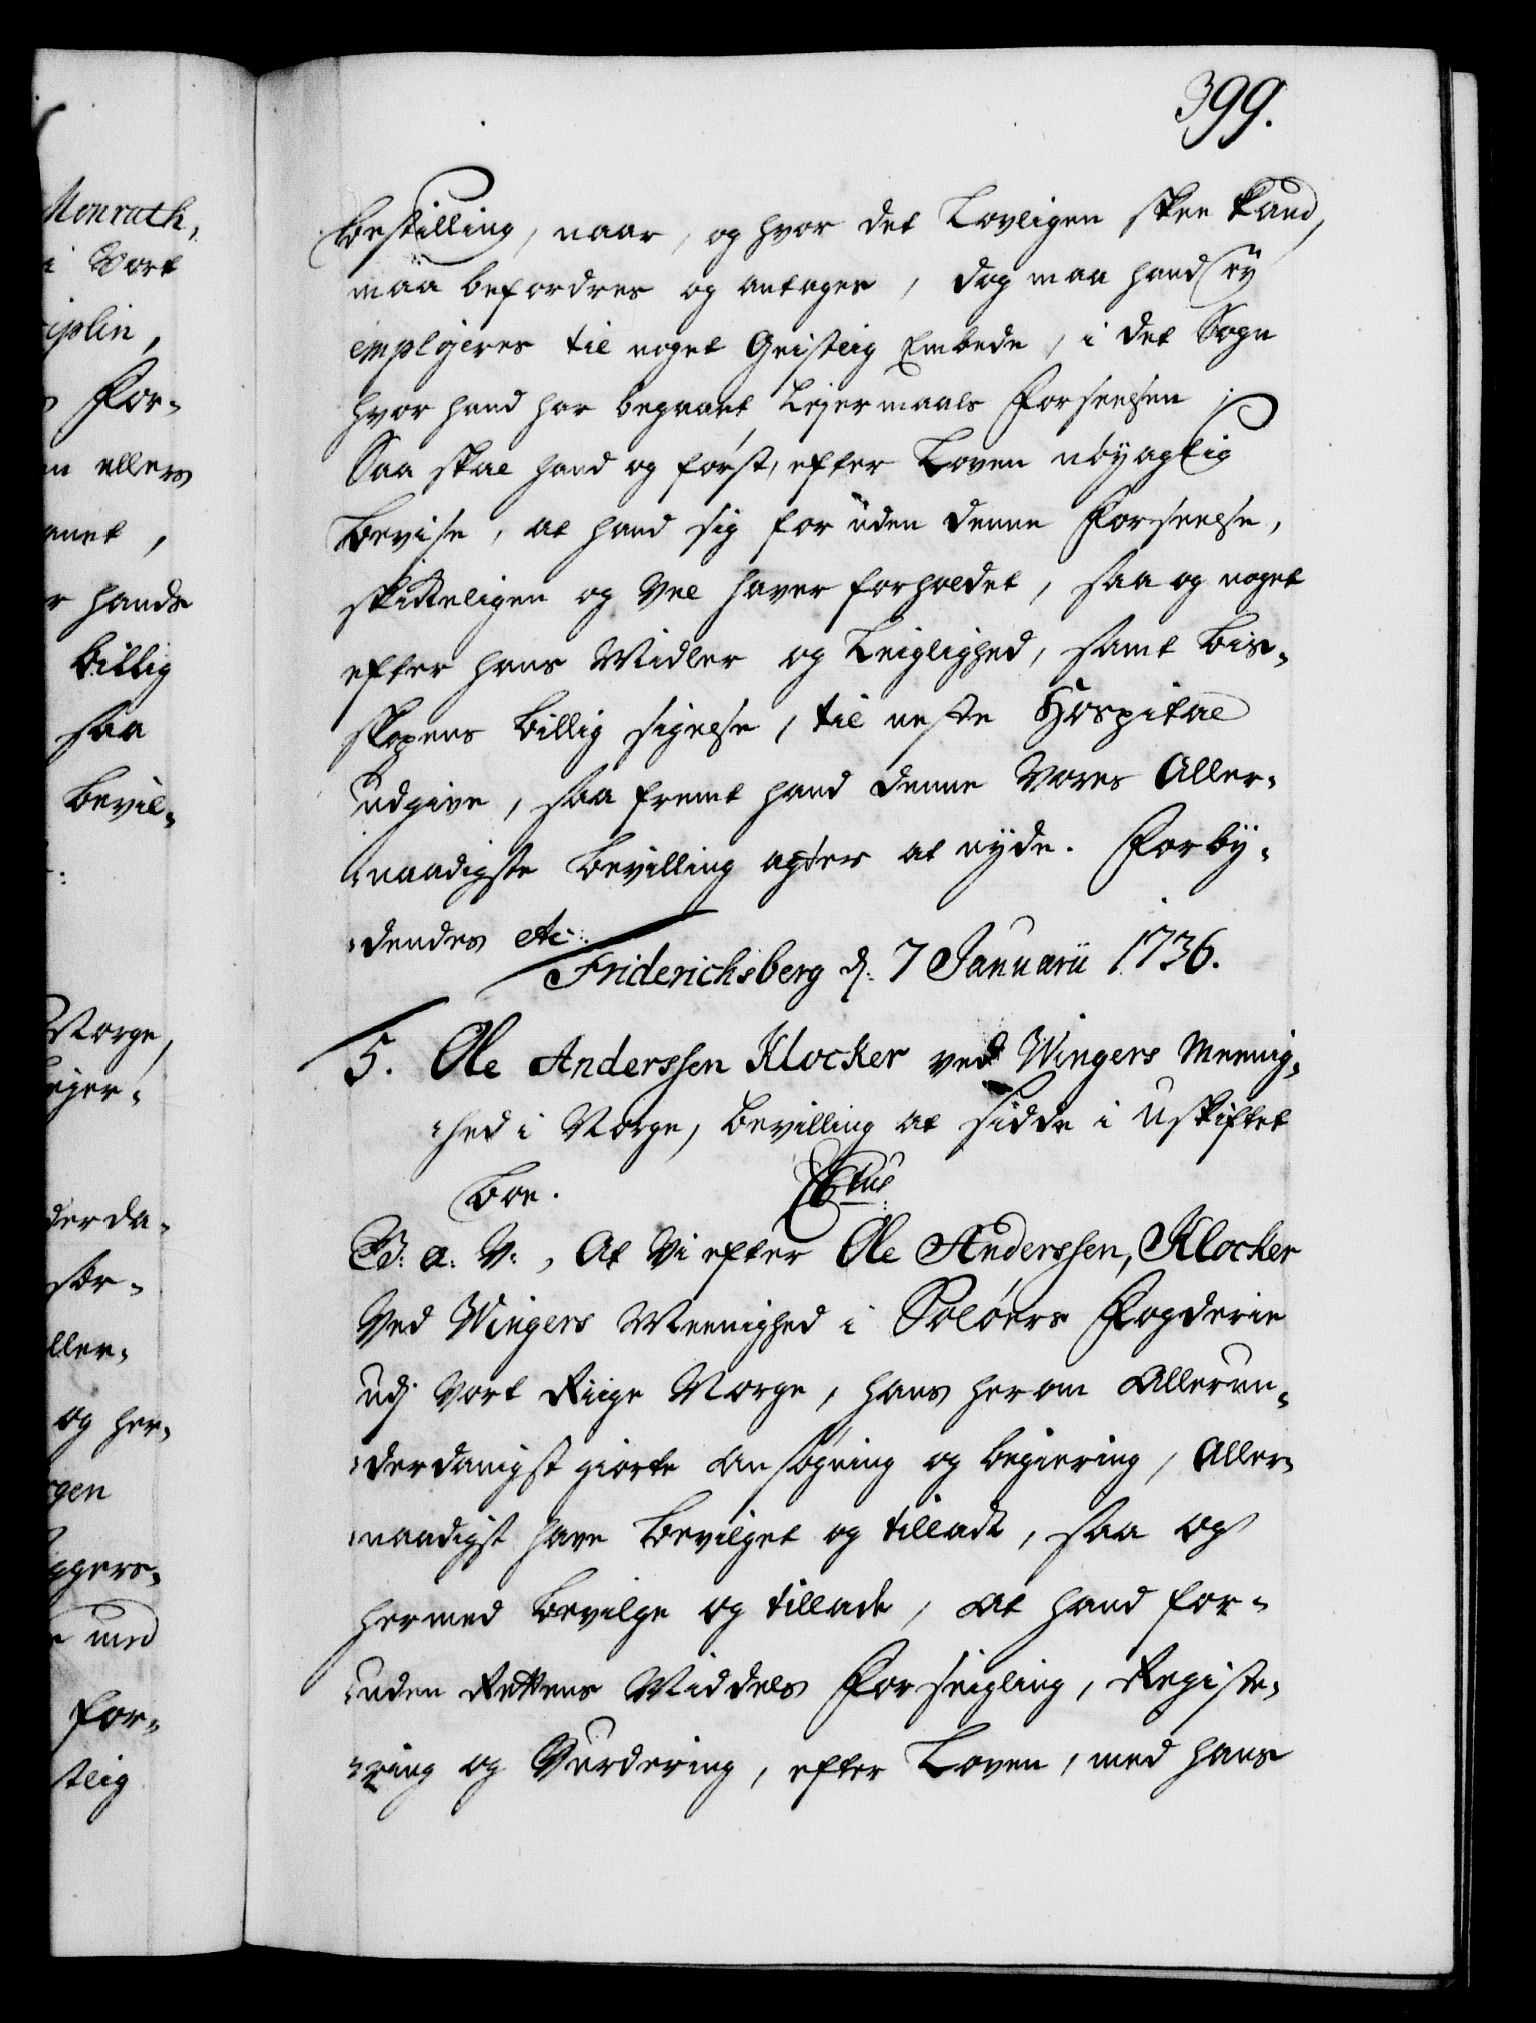 399.
Monrath,
i Vort
iplin,
For-
ellers
hands
billig
saa
bevil-
Norge,
derda-
ller-
og her-
med
for-
Bestilling, naar, og hvor det Lovligen skee kand,
maa befordres og antages, dog maa hand ey
emplojeres til noget Geistlig Embede, i det Sogn
hvor hand har begaaet Lejermaals Forseelsen;
Saa skal hand og først, efter Loven nøyagtig
bevise, at hand sig foruden denne Forseelse,
skikkeligen og Vel haver forholdet, saa og noget
efter hans Midler og Leiglighed, samt Bis-
skopens billig sigelse, til neste Hospital
udgive, saa fremt hand denne Vores Aller-
naadigste Bevilling agter at nyde. Forby-
dendes etc:
Friderichsberg d: 7 Januarii 1736.
5. Ole Anderssen Klocker ved Wingers Meenig-
hed i Norge, Bevilling at sidde i Uskiftet
Boe.
G: a: V:, At Vi efter Ole Anderssen, Klocker
Ved Wingers Meenighed i Soløers Fogderie
udj Vort Riige Norge, hans herom Allerun-
derdanigst giorte Ansøgning og begiering, Aller-
naadigst have bevilget og tilladt, saa og
hermed bevilge og tillade, At hand for-
uden Rettens Middels Forseigling, Registe-
ring og Vurdering, efter Loven, med hans